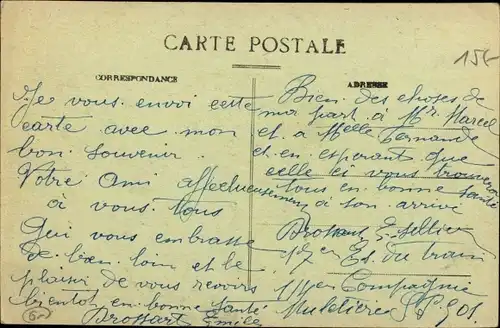 CARTE POSTALE
15f
CORRESPONDANCE
Je vous envoi cette
carte avec mon
bon souvenir.
Votre ami affectueusement
à vous tous
Qui vous embrasse
de bien loin et le
plaisir de vous revoirs
bientot en bonne santé
Brossart Emile
ADRESSE
Bien des choses de
ma part à Mr Marcel
et à Melle Fernande
et en esperant que
celle ci vous trouve
tous en bonne santé
à son arrivé
Brossart E
17 em Es. du train
Compagnie
Muletière S.P. 901